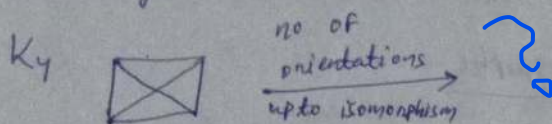 no of
K4
orientations
upto isomorphism
?